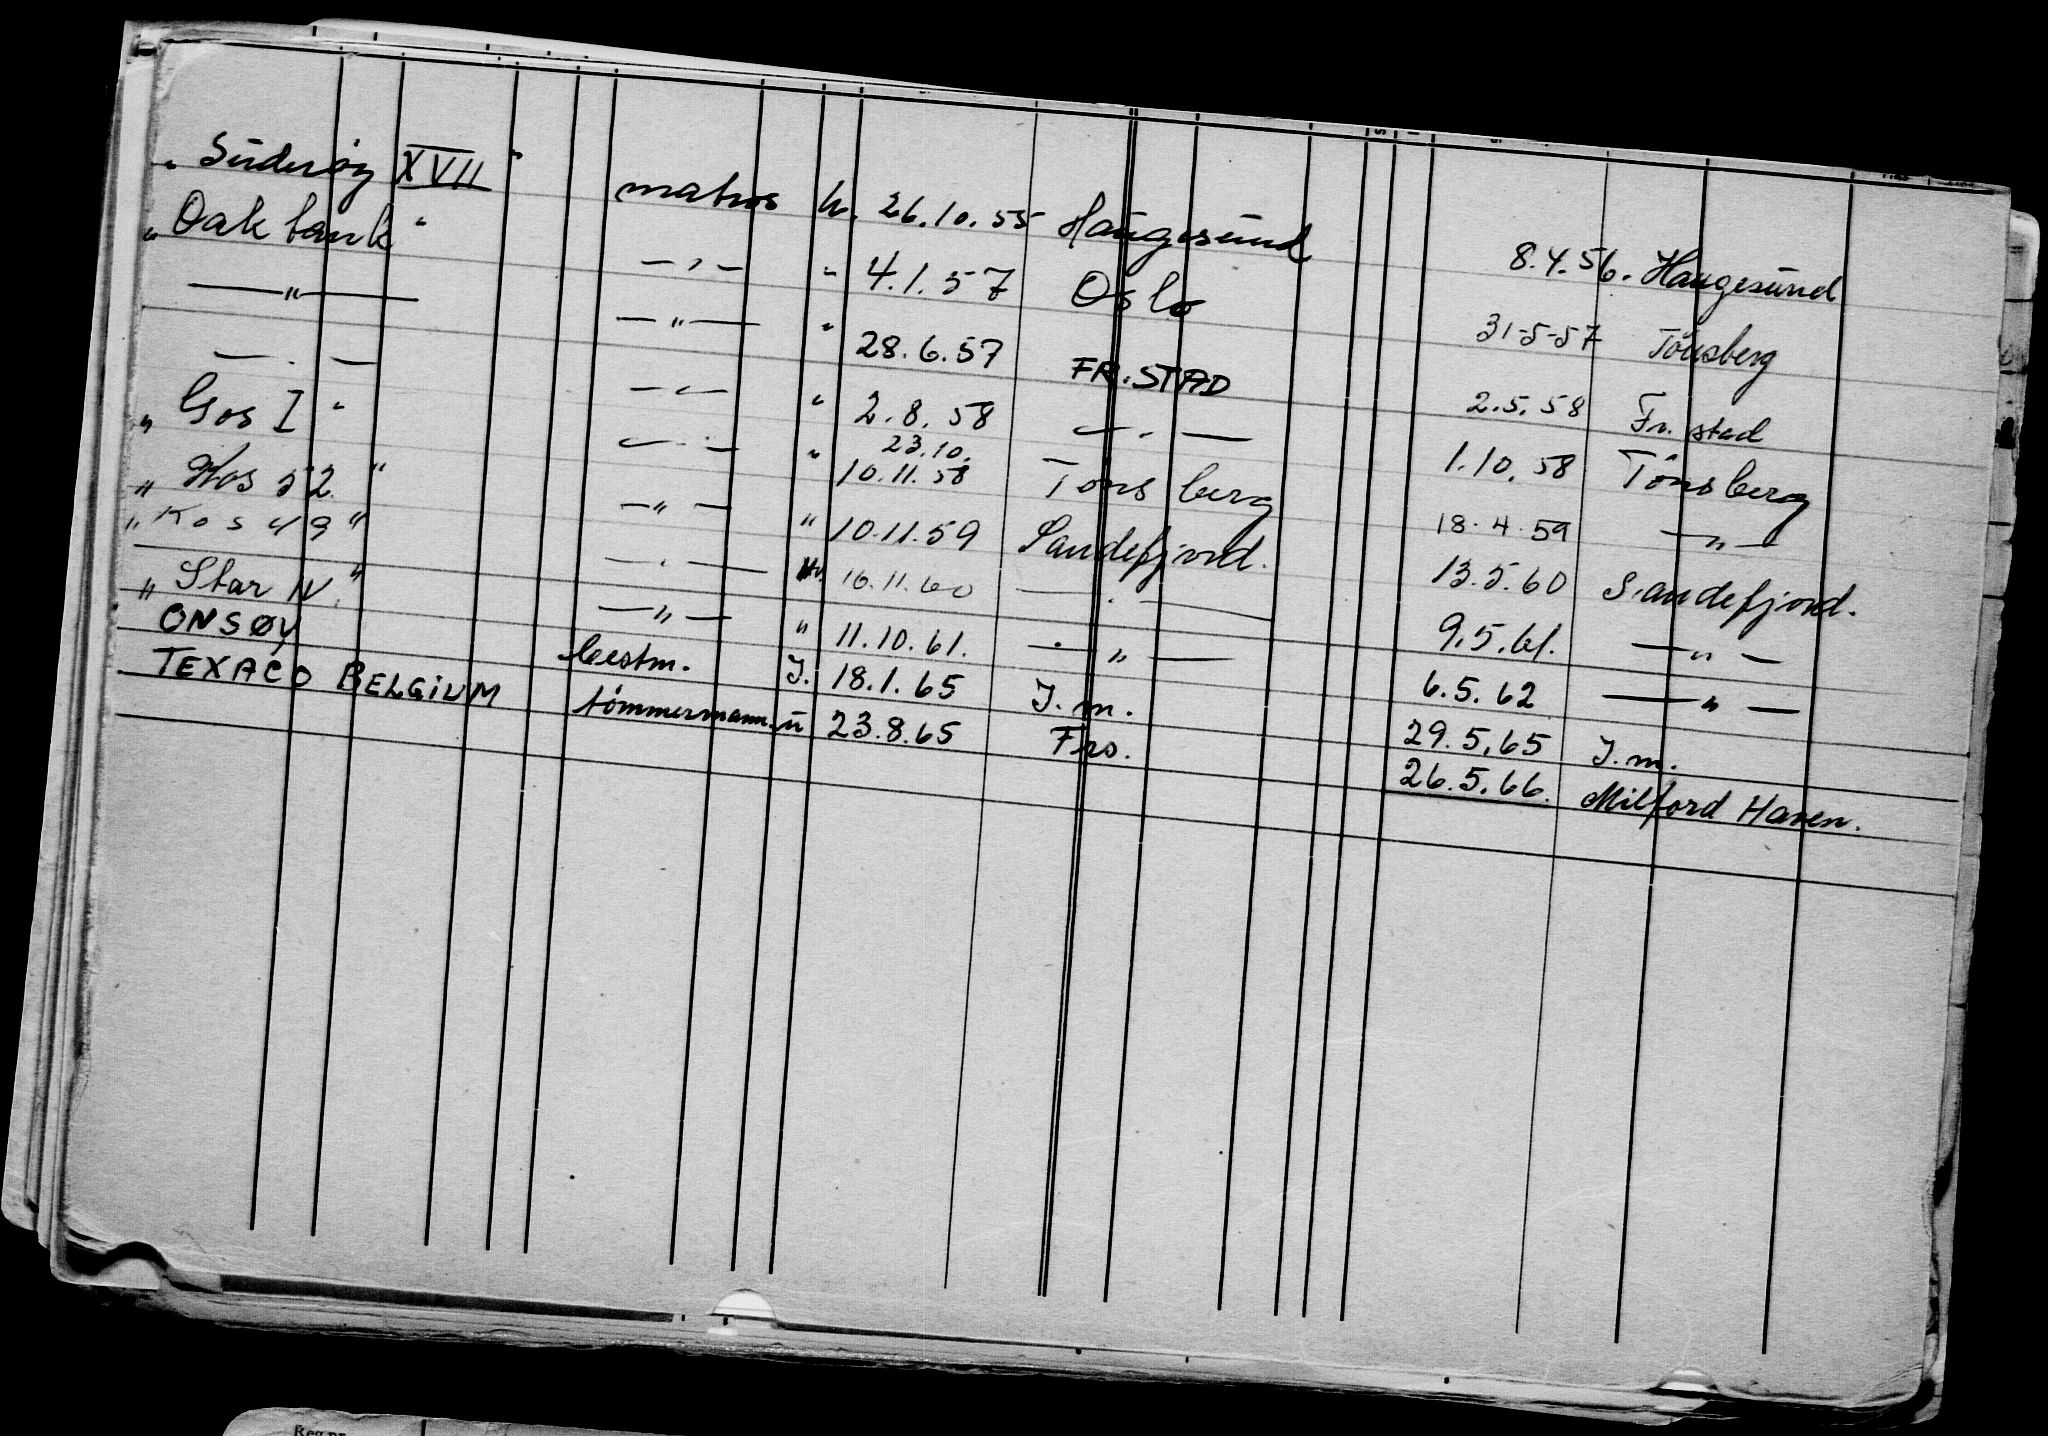 "Süderöy XVII" matros h. 26.10.55 Haugesund 8.4.56. Haugesund
"Oakbank" — " — " 4.1.57 Oslo 31-5-57 Tönsberg
— " — — " — " 28.6.57 FR.STAD 2.5.58 Fr.stad
— " — — " — " 2.8.58 — " — 1.10.58 Tönsberg
"Gos I" — " — " 23.10.
10.11.58 Tönsberg 18.4.59 — " —
"Kos 52" — " — " 10.11.59 Sandefjord. 13.5.60 Sandefjord.
"Kos 49" — " — 16.11.60 — " — 9.5.61. — " —
"Star IV." — " — " 11.10.61. — " — 6.5.62 — " —
ONSØY bestm. I. 18.1.65 I.m. 29.5.65 I.m.
TEXACO BELGIUM tömmermann. u 23.8.65 Fro. 26.5.66. Milford Haven.
Reg.nr.